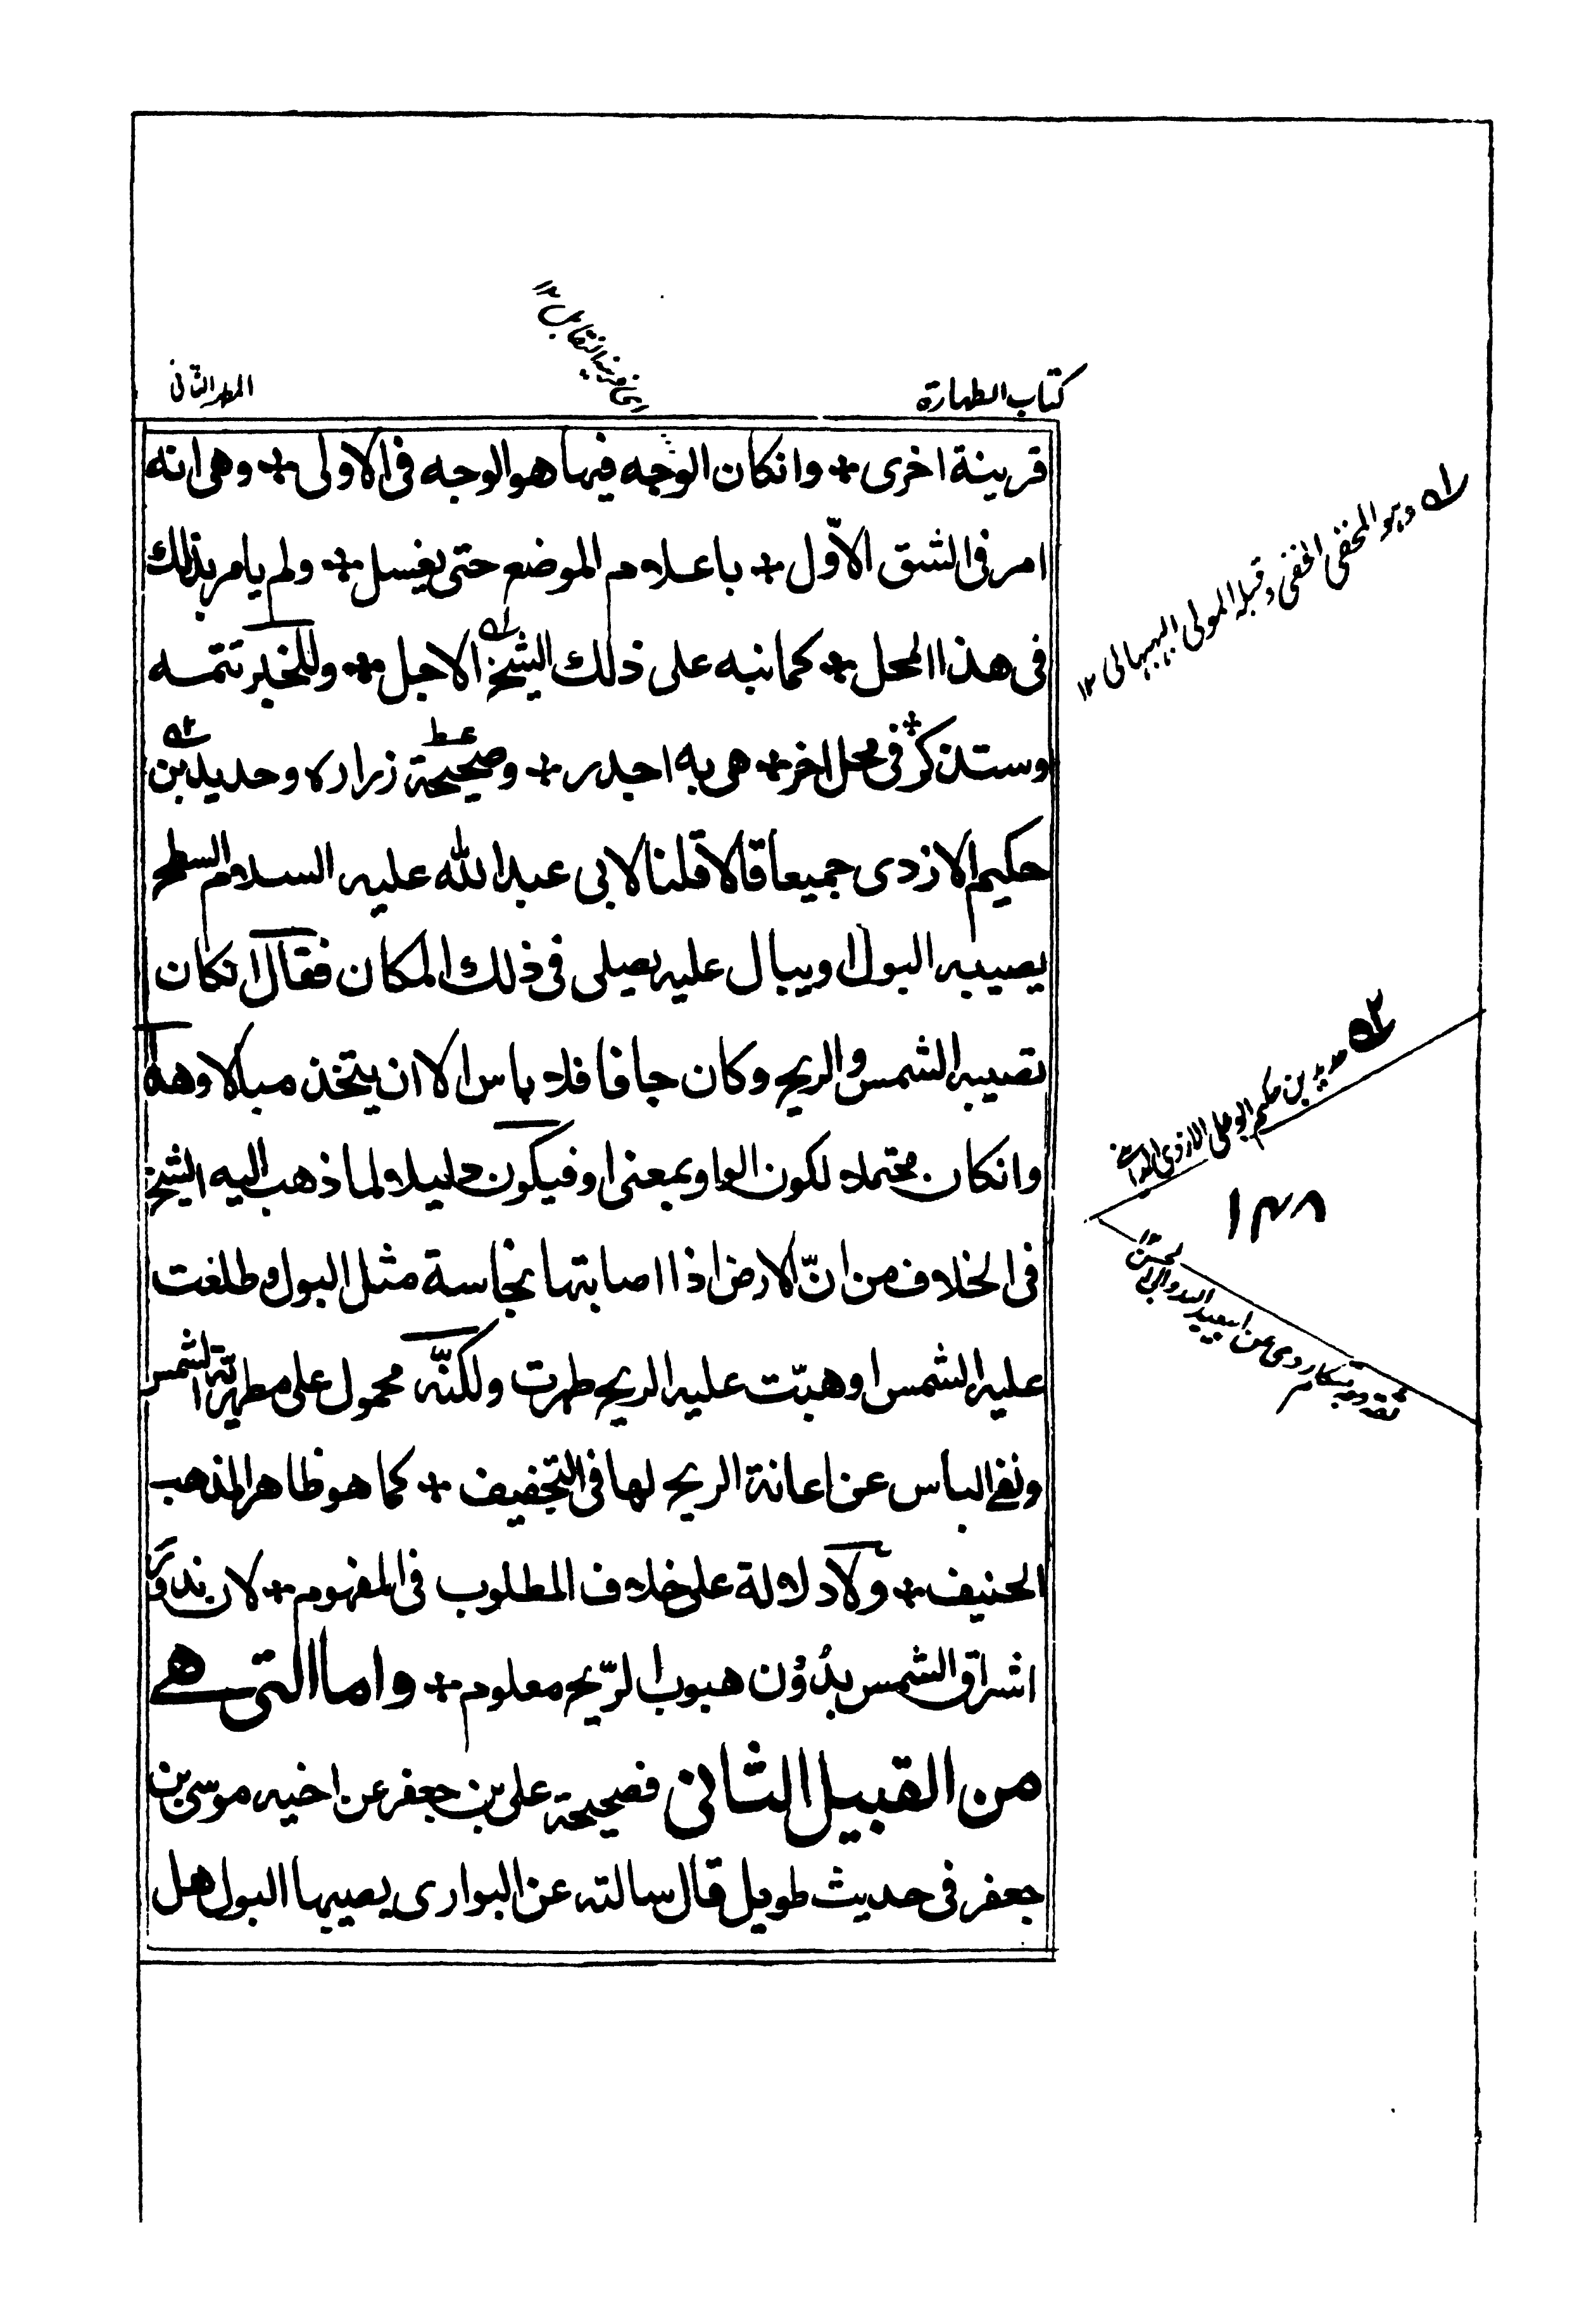 كتاب الطهارة
المطهر الثاني
قرينة اخرى + وانكان الوجه فيها هو الوجه فى الاولى + وهى انه
امر فى الشق الاوّل + باعلام الموضع حتى يغسل + ولم يامر بذلك
فى هذا المحل + كما نبه على ذلك الشيخ الاجل + وللخبر تتمه
وستذكر فى محل اخر + هى به اجدر + وصحيحة زراره وحديد بن
حكيم الازدى جميعا قالا قلنا لابى عبد الله عليه السلام السطح
يصيبه البول او يبال عليه يصلى فى ذلك المكان فقال انكان
تصيبه الشمس والريح وكان جافا فلا باس الا ان يتخذ مبالا وهذا
وانكان محتملا لكون الواو بمعنى او فيكون دليلا ولما ذهب اليه الشيخ
فى الخلاف من انّ الارض اذا اصابتها نجاسة مثل البول وطلغت
عليه الشمس او هبّت عليه الريح طهرت ولكنّه محمول على مطهريّة الشمس
ونفى الباس عن اعانة الريح لها فى التجفيف + كما هو ظاهر المذهب
الحنيف + ولا دلالة على خلاف المطلوب فى المفهوم + لان ندور
اشراق الشمس بدُوْن هبوب الرّيح معلوم + واما التى هے
من القبيل الثانى فصحيحة على بن جعفر عن اخيه موسى بن
جعفر فى حديث طويل قال سالته عن البوارى يصيبها البول هل
وهو المحقق الخفى وقبله المولى البهبهانى ١٢
حديد بن حكيم ابو على الازدى المدائنى
١٤٨